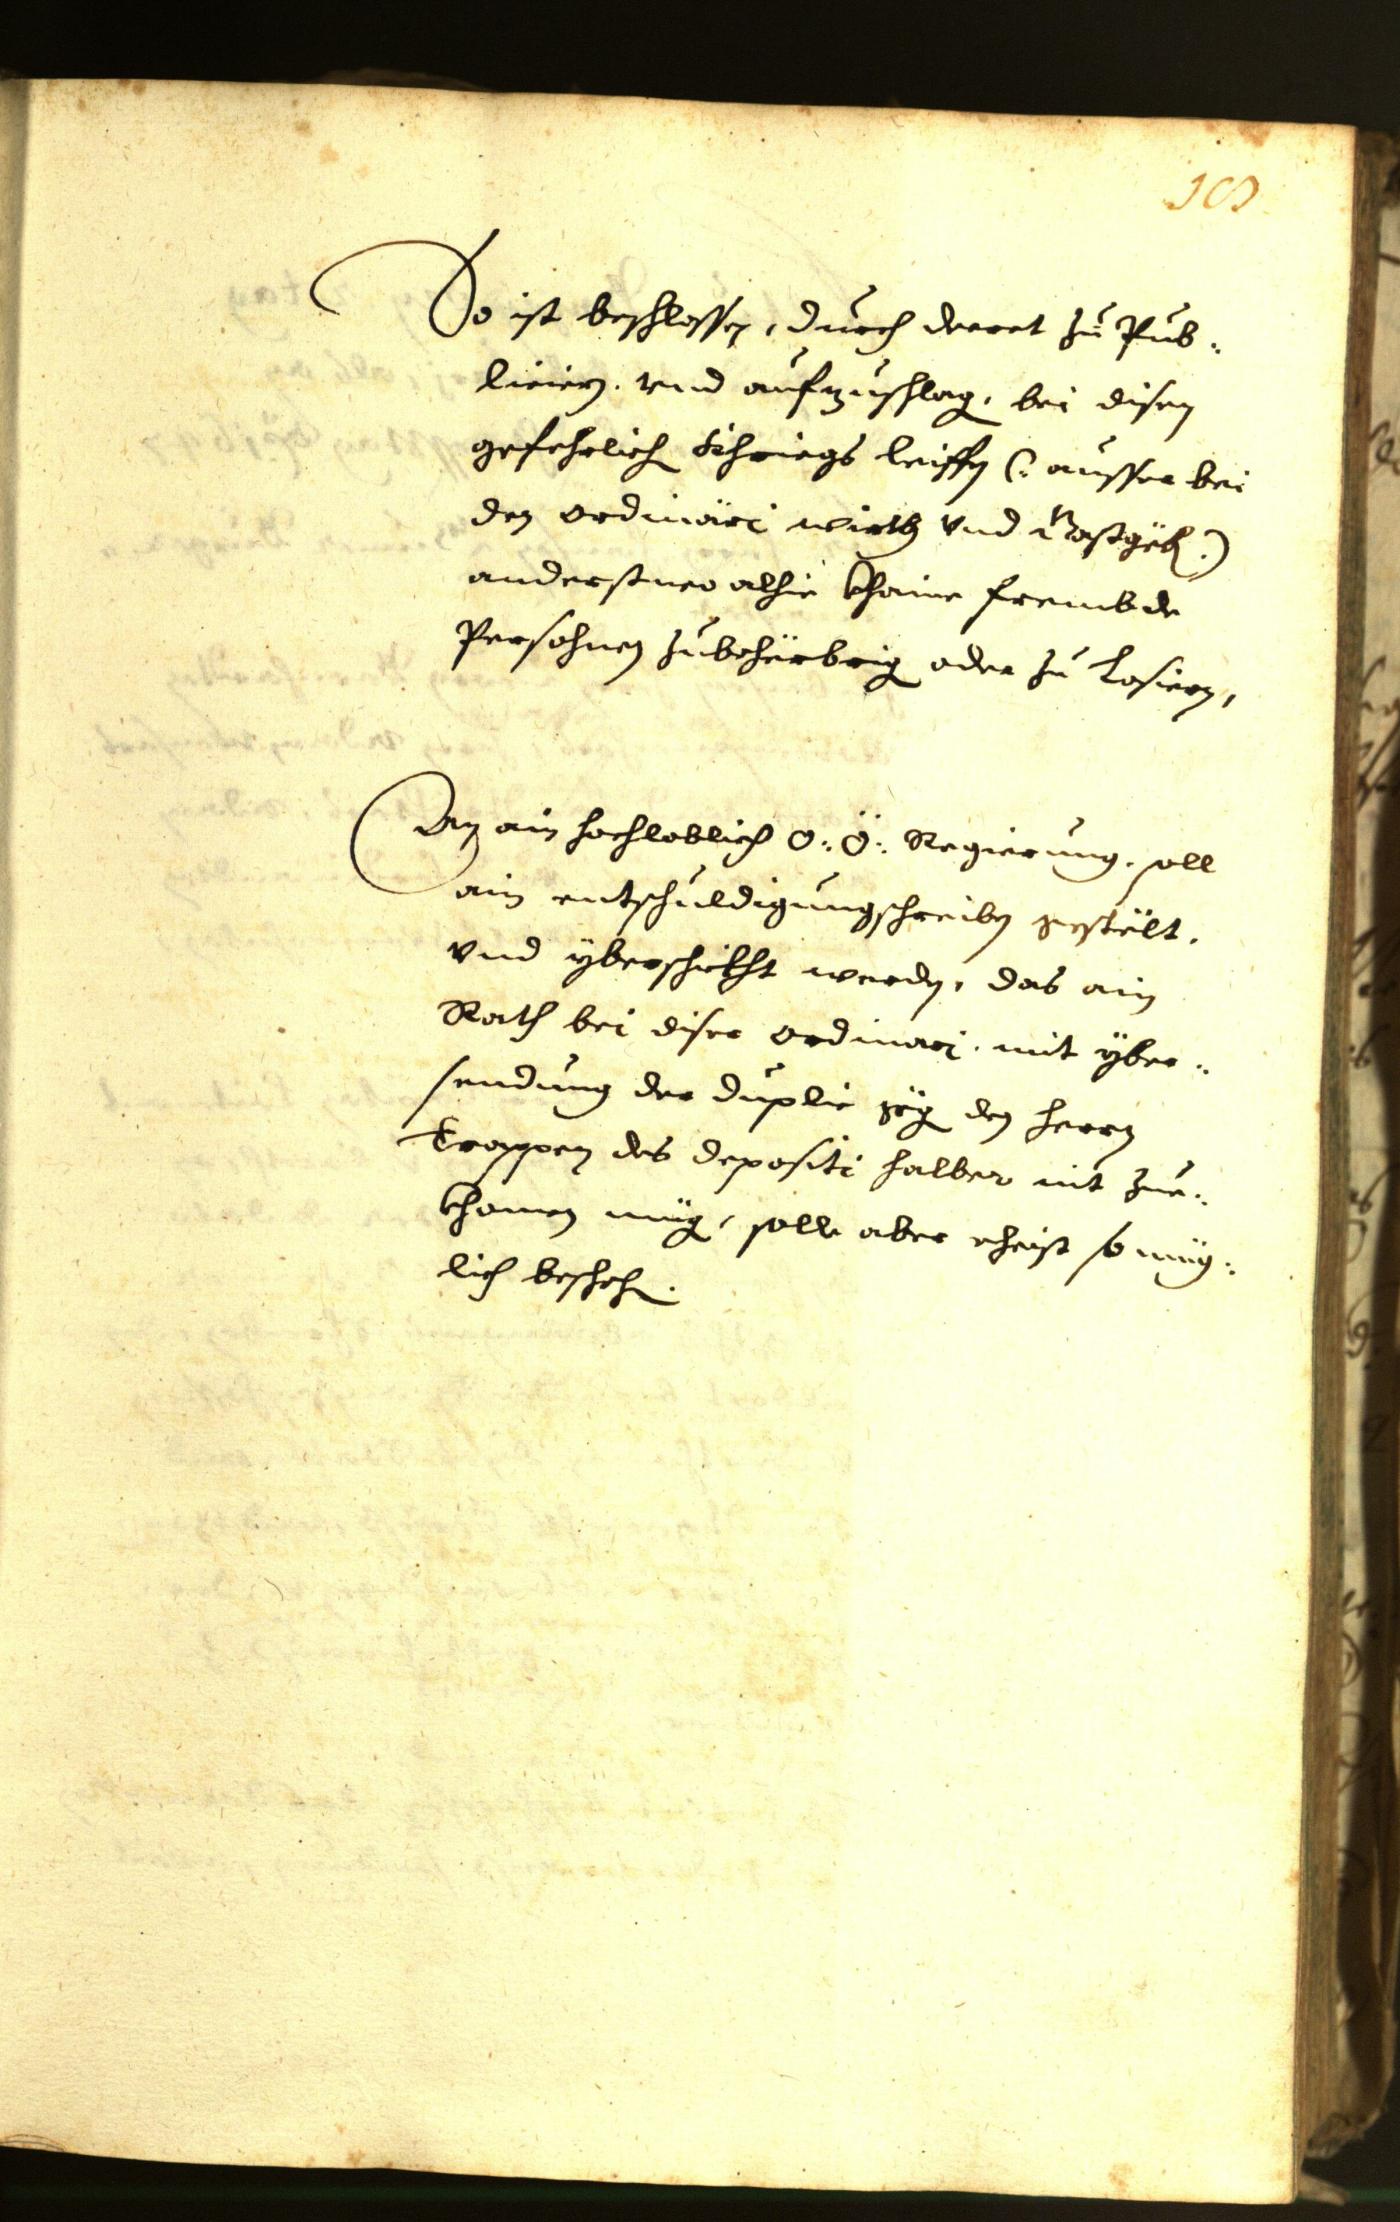 So ist beschlossen, durch decret zu Pub¬
licieren. vnd aufzuschlagen, bei disen
gefehrlichen Khriegs leiffen (: ausser bei
den ordinäri wirth vnd Gastgeb :)
anderstwo alhie khaine frembde
Persohnen zubeherbrigen oder zu Losiern,
An ain hochloblich O: Ö: Regierung, soll
ain entschuldigungschreiben gestelt.
vnd yberschikht werden, das ain
Rath bei diser ordinari. mit yber¬
sendung der duplic gegen den herrn
Troppen des depositi halber nit zue¬
khomen müg, solle aber eheist so müg¬
lich beschehen.